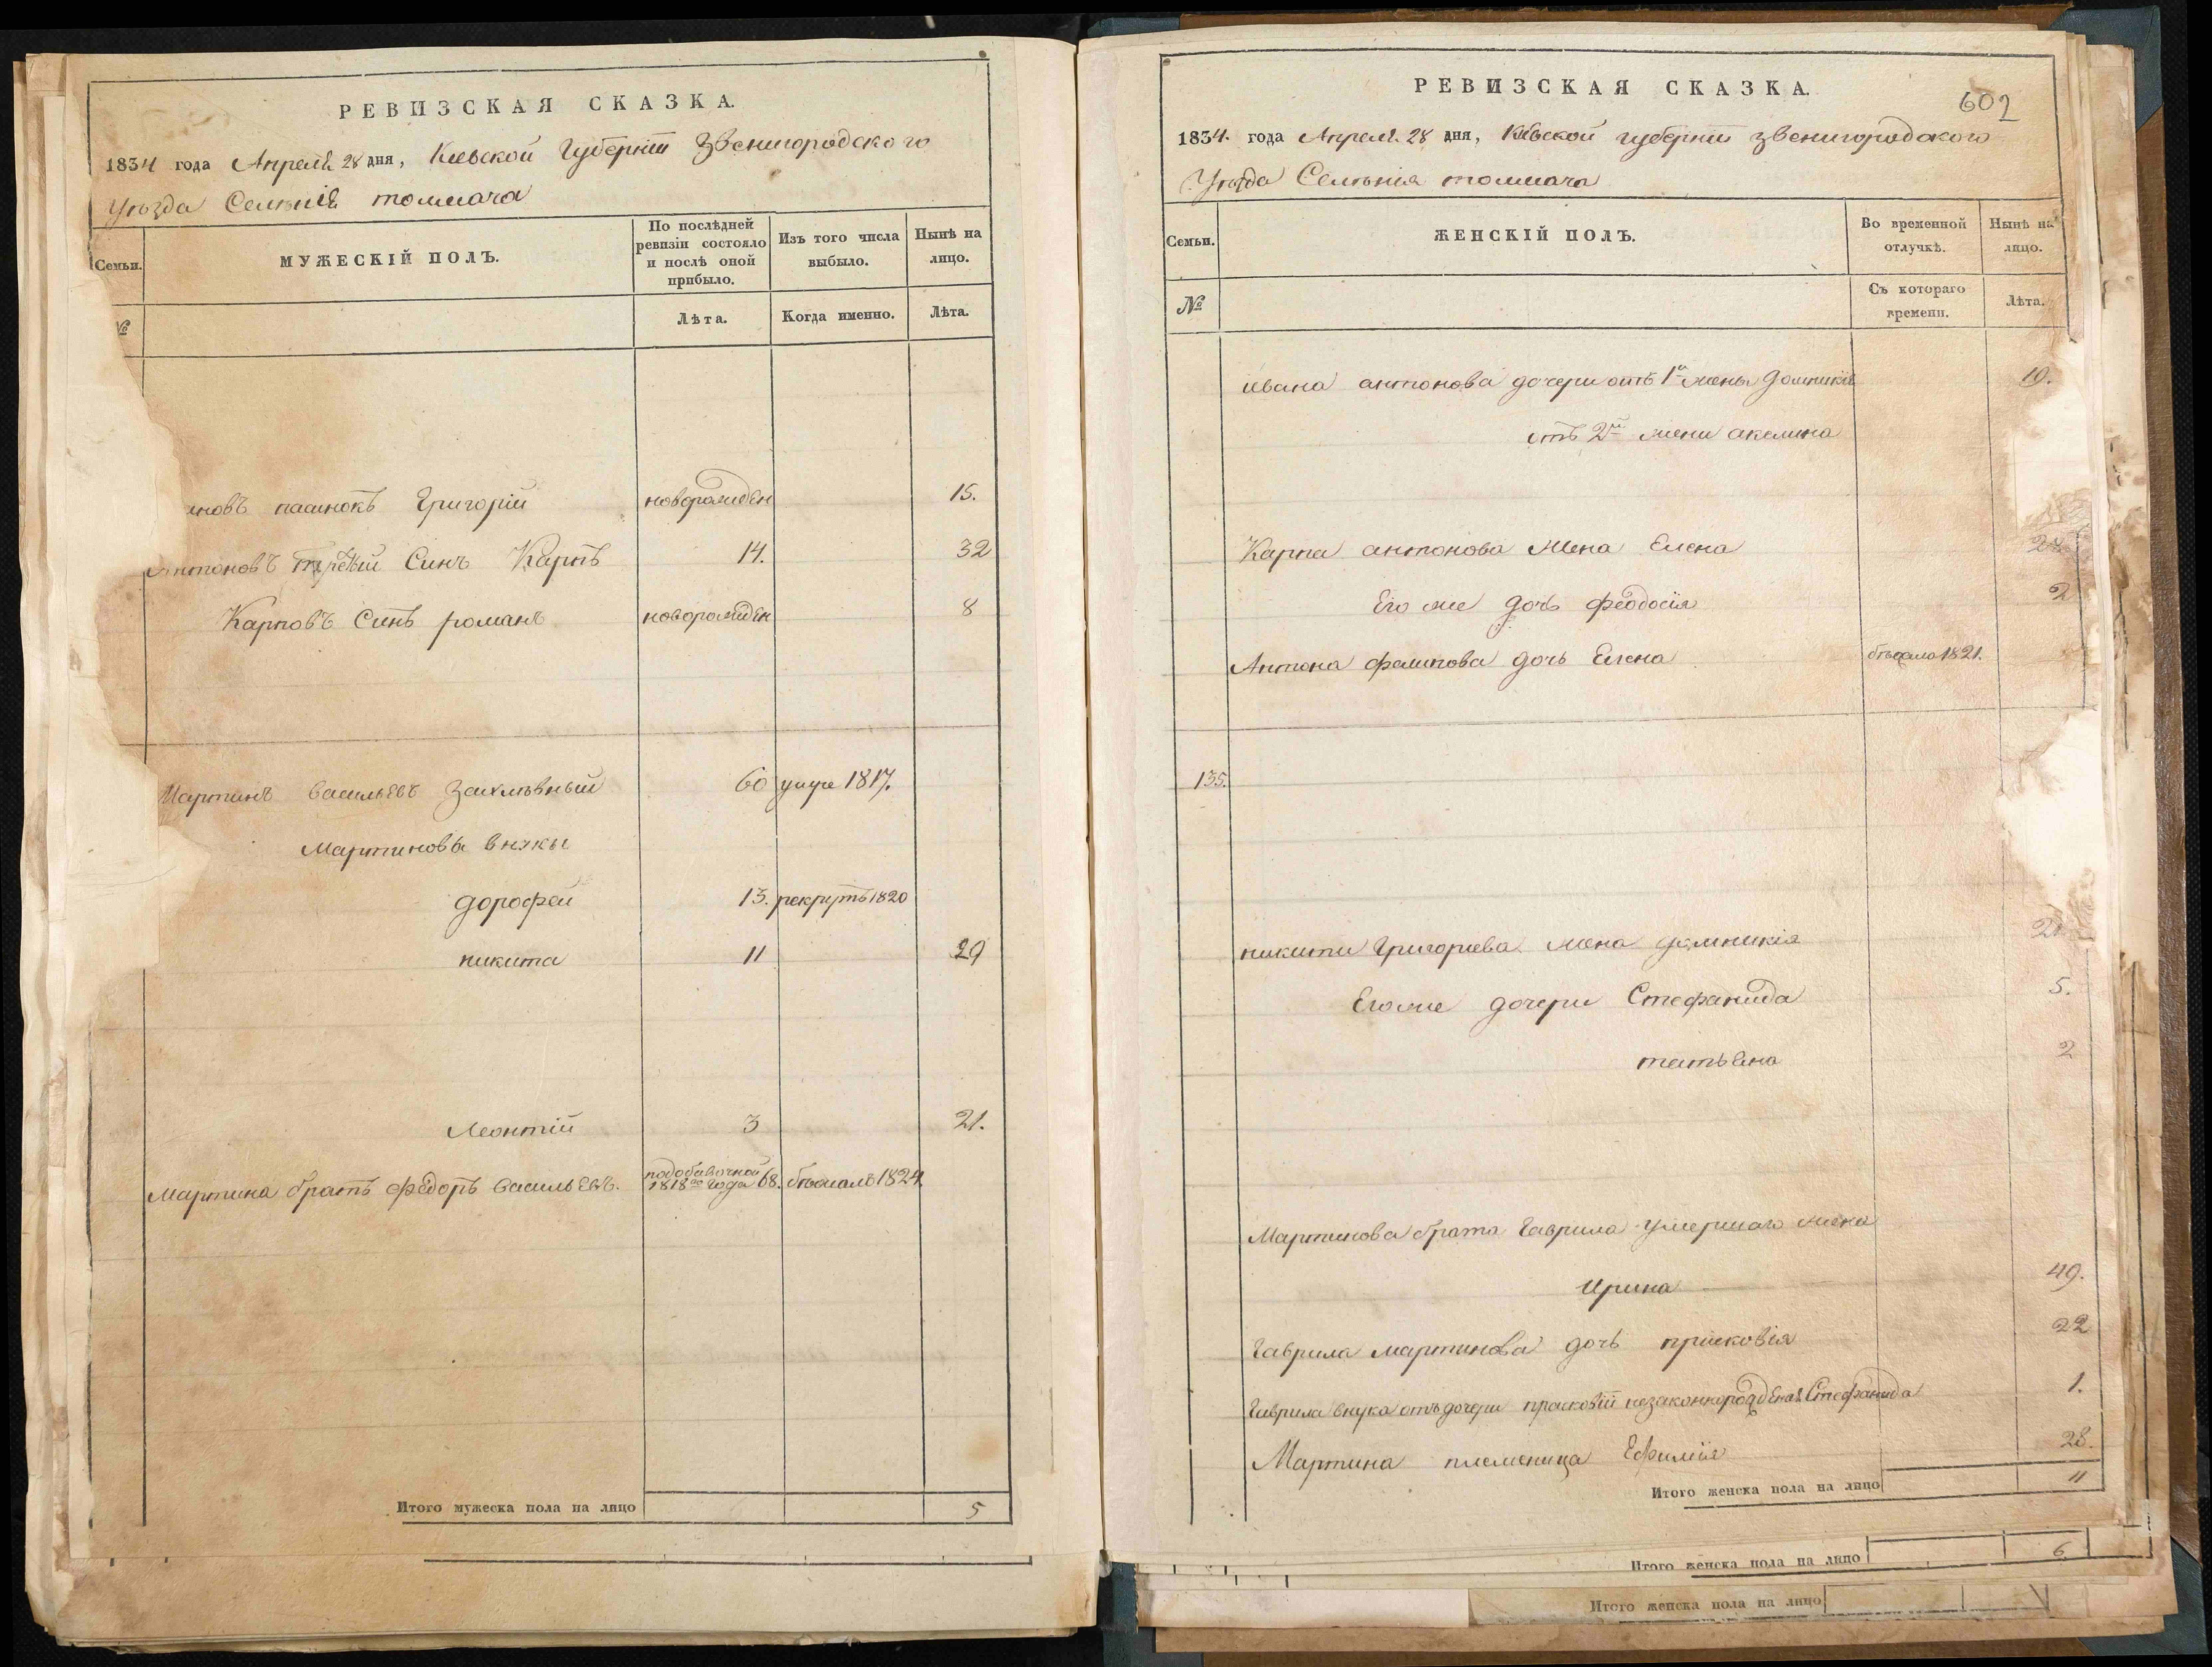 РЕВИЗСКАЯ СКАЗКА.
1834 года Апреля 28 дня, Киевской Губерніи Звенигородского
Уѣзда Селѣнія толмача
Семьи.
МУЖЕСКІЙ ПОЛЪ.
По послѣдней ревизіи состояло и послѣ оной прибыло.
Изъ того числа выбыло.
Нынѣ на лицо.
№
Лѣта.
Когда именно.
Лѣта.
новъ пасинокъ Григорій новорожден 15.
Антоновъ третій Синъ Карпъ 14. 32
Карповъ Синъ романъ новорожден 8
Мартинъ васильевъ 60 умре 1817.
Мартинова внуки
дорофей 13. рекрутъ 1820
никита 11 29
Леонтій 3 21.
Мартина братъ федоръ васильевъ. подобавочной 1818го года 68. бѣжалъ 1824.
Итого мужеска пола на лицо 5
РЕВИЗСКАЯ СКАЗКА.
602
1834. года Апреля 28 дня, Кіевской губерніи звенигородского
Уѣзда Селѣнія толмача
Семьи.
ЖЕНСКІЙ ПОЛЪ.
Во временной отлучкѣ.
Нынѣ на лицо.
№
Съ котораго времени.
Лѣта.
ивана антонова дочери отъ 1й жены Домникія 19.
отъ 2й жени акелина
Карпа антонова жена Елена
Его же дочь феодосія 2
Антона филипова дочь Елена бѣжала 1821.
135.
никити Григориева жена домникія
Его же дочери Стефанида 5.
татьяна 2
Мартинова брата Гаврила умершаго жена
Ирина 49.
Гаврила мартинова дочь присковія 22
Гаврила внука отъ дочери прасковіи незаконнорожденая Стефанида 1.
Мартина племеница Ефимія 28.
Итого женска пола на лицо 11
Итого женска пола на лицо 6
Итого женска пола на лицо